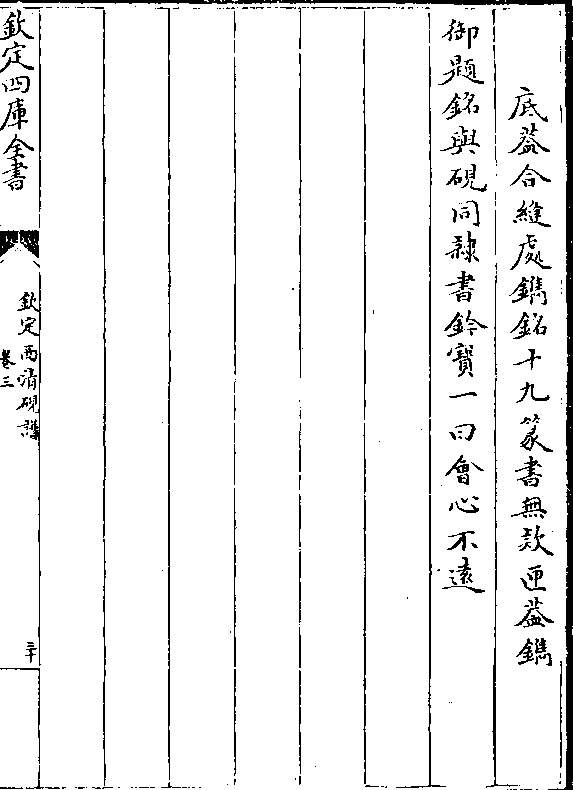 底葢合縫處鐫銘十九篆書無款匣葢鐫
御題銘與硯同隸書鈐寳一曰會心不遠
欽定四庫全書
欽定西清硯譜
卷三
三十